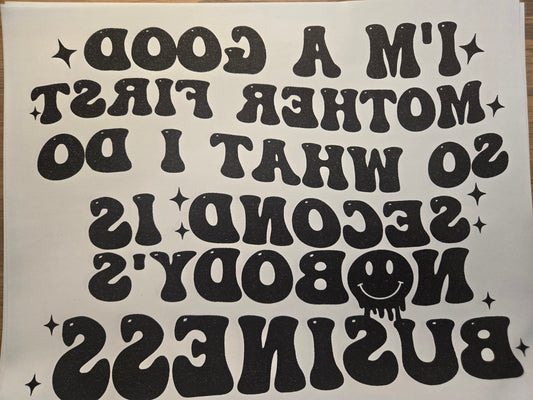 I'M A GOOD
MOTHER FIRST
SO WHAT I DO
SECOND IS
NOBODY'S
BUSINESS